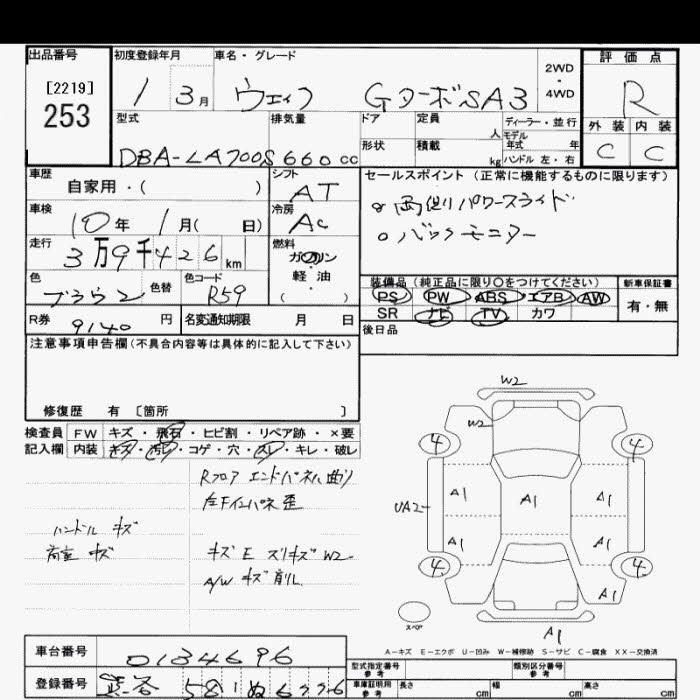 出品番号
[2219]
253
初度登録年月
1 3月
車名・グレード
ウェイク GターボSA3
2WD
4WD
評価点
R
外装 内装
C C
型式
DBA-LA700S
排気量
660cc
ドア
形状
定員
人
積載
kg
ディーラー・並行
モデル
年式 年
ハンドル 左・右
車歴
自家用・( )
シフト
AT
車検
10年 1月( 日)
冷房
AC
走行
3万9千426km
燃料
ガソリン
軽油
( )
色
ブラウン
色替
色コード
R59
R券
9140円
名変通知期限 月 日
セールスポイント(正常に機能するものに限ります)
○両側パワースライド
○バックモニター
装備品(純正品に限り○をつけてください)
PS PW ABS エアB AW
SR ナビ TV カワ
新車保証書
有・無
後日品
注意事項申告欄(不具合内容等は具体的に記入して下さい)
修復歴 有 〔箇所 〕
検査員 FW キズ・飛石・ヒビ割・リペア跡・×要
記入欄 内装 キズ・汚レ・コゲ・穴・スレ・キレ・破レ
Rフロア エンドパネル曲り
左Fインパネ歪
ハンドル キズ
荷室 キズ
キズ E スリキズ W2
A/W キズ 削レ
W2
W2
4 4
A1 A1 A1
UA2
A1 A1
4 4
A1
スペア
A1
A-キズ E-エクボ U-凹み W-補修跡 S-サビ C-腐食 XX-交換済
車台番号
0134696
登録番号
581 ぬ
型式指定番号
参考
類別区分番号
参考
車庫証明用
参考
長さ cm 幅 cm 高さ cm